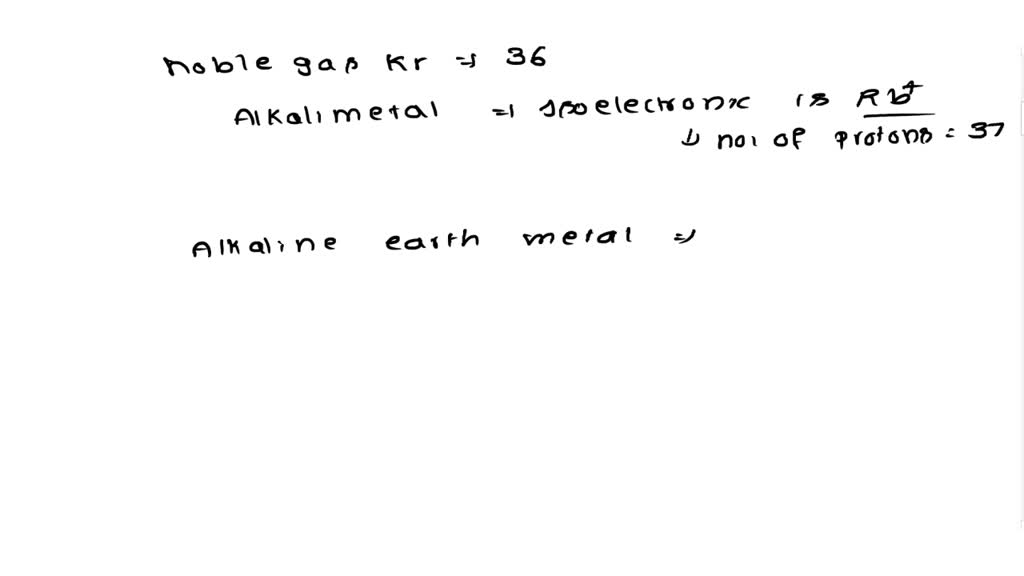 Noble gas Kr ⇒ 36
Alkali metal ⇒ isoelectronic is Rb⁺
↳ no. of protons = 37
Alkaline earth metal ⇒